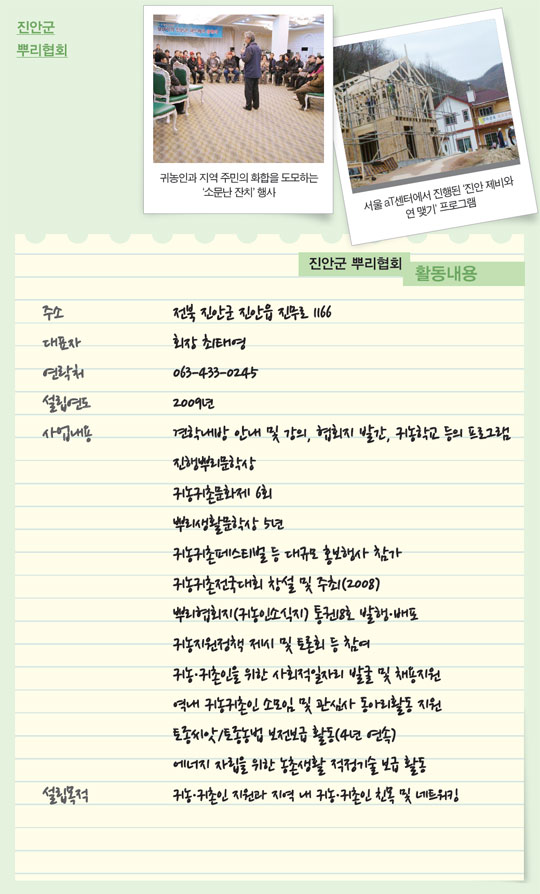 진안군
뿌리협회
귀농인과 지역 주민의 화합을 도모하는
'소문난 잔치' 행사
서울 aT센터에서 진행된 '진안 제비와
연 맺기' 프로그램
진안군 뿌리협회
활동내용
주소 전북 진안군 진안읍 진무로 1166
대표자 회장 최태영
연락처 063-433-0245
설립연도 2009년
사업내용 견학내방 안내 및 강의, 협회지 발간, 귀농학교 등의 프로그램
진행뿌리문학상
귀농귀촌문화제 6회
뿌리생활문학상 5년
귀농귀촌페스티벌 등 대규모 홍보행사 참가
귀농귀촌전국대회 창설 및 주최(2008)
뿌리협회지(귀농인소식지) 통권18호 발행·배포
귀농지원정책 제시 및 토론회 등 참여
귀농·귀촌인을 위한 사회적일자리 발굴 및 채용지원
역내 귀농귀촌인 소모임 및 관심사 동아리활동 지원
토종씨앗/토종농법 보전보급 활동(4년 연속)
에너지 자립을 위한 농촌생활 적정기술 보급 활동
설립목적 귀농·귀촌인 지원과 지역 내 귀농·귀촌인 친목 및 네트워킹